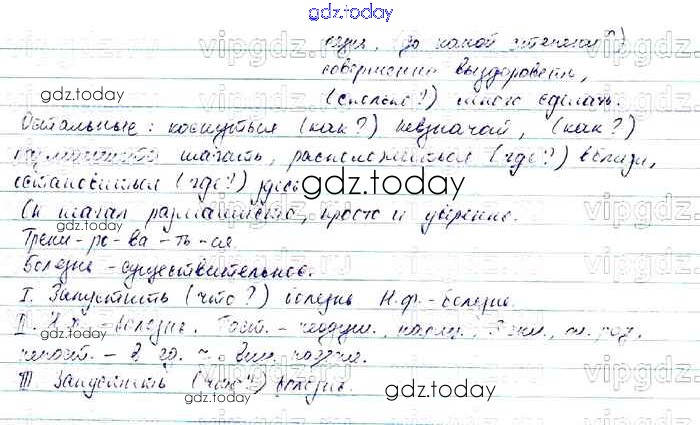 gdz.today
(до какой степени?)
совершенно выздороветь,
(сколько?) много сделать.
Остальные: коснуться (как?) невзначай, (как?)
размашисто шагать, расположиться (где?) вблизи,
остановиться (где?) здесь
Он шагал размашисто, просто и уверенно.
Трени-ро-ва-ть-ся.
Болезнь - существительное.
I. Запустить (что?) болезнь Н.ф. - болезнь.
II. Н.ф. - болезнь. Пост. - неодуш., нариц., 3 скл., ж. род,
непост. - в ед. ч., Вин. падеже.
III Запустить (что?) болезнь.
gdz.today
gdz.today
gdz.today
gdz.today
vipgdz.ru